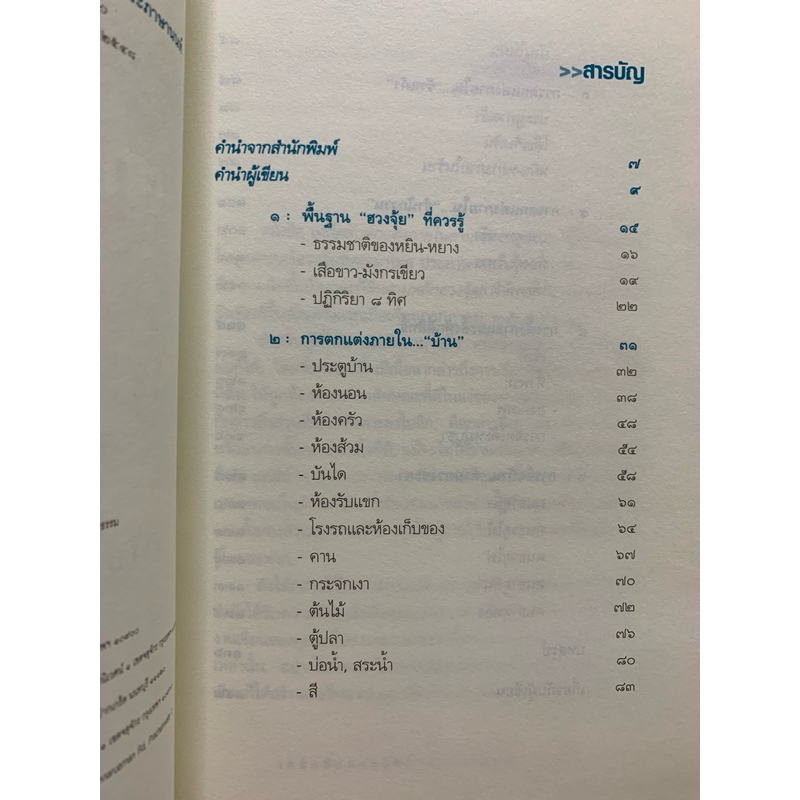 >>สารบัญ
คำนำจากสำนักพิมพ์ ๗
คำนำผู้เขียน ๙
๑ : พื้นฐาน “ฮวงจุ้ย” ที่ควรรู้ ๑๕
- ธรรมชาติของหยิน-หยาง ๑๖
- เสือขาว-มังกรเขียว ๑๙
- ปฏิกิริยา ๘ ทิศ ๒๒
๒ : การตกแต่งภายใน...“บ้าน” ๓๑
- ประตูบ้าน ๓๒
- ห้องนอน ๓๘
- ห้องครัว ๔๘
- ห้องส้วม ๕๔
- บันได ๕๘
- ห้องรับแขก ๖๑
- โรงรถและห้องเก็บของ ๖๔
- คาน ๖๗
- กระจกเงา ๗๐
- ต้นไม้ ๗๒
- ตู้ปลา ๗๖
- บ่อน้ำ, สระน้ำ ๘๐
- สี ๘๓